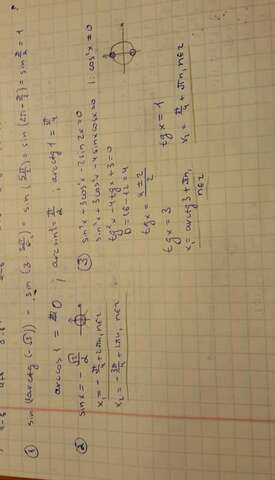 ① sin(4arctg(-√3)) - sin(3·5π/6) = sin(5π/2) = sin(2π-π/2) = sin π/2 = 1
arccos 1 = 0 ; arcsin 1 = π/2 , arctg 1 = π/4
② sin x = -√2/2
x₁ = -π/4 + 2πn, n∈z
x₂ = -3π/4 + 2πn, n∈z
③ sin²x + 3cos²x - 2sin2x = 0
sin²x + 3cos²x - 4sinxcosx = 0 | : cos²x ≠ 0
tg²x - 4tgx + 3 = 0
D = 16 - 12 = 4
tgx = 4±2/2
tgx = 3
x₁ = arctg3 + πn, n∈z
tgx = 1
x₂ = π/4 + πn, n∈z